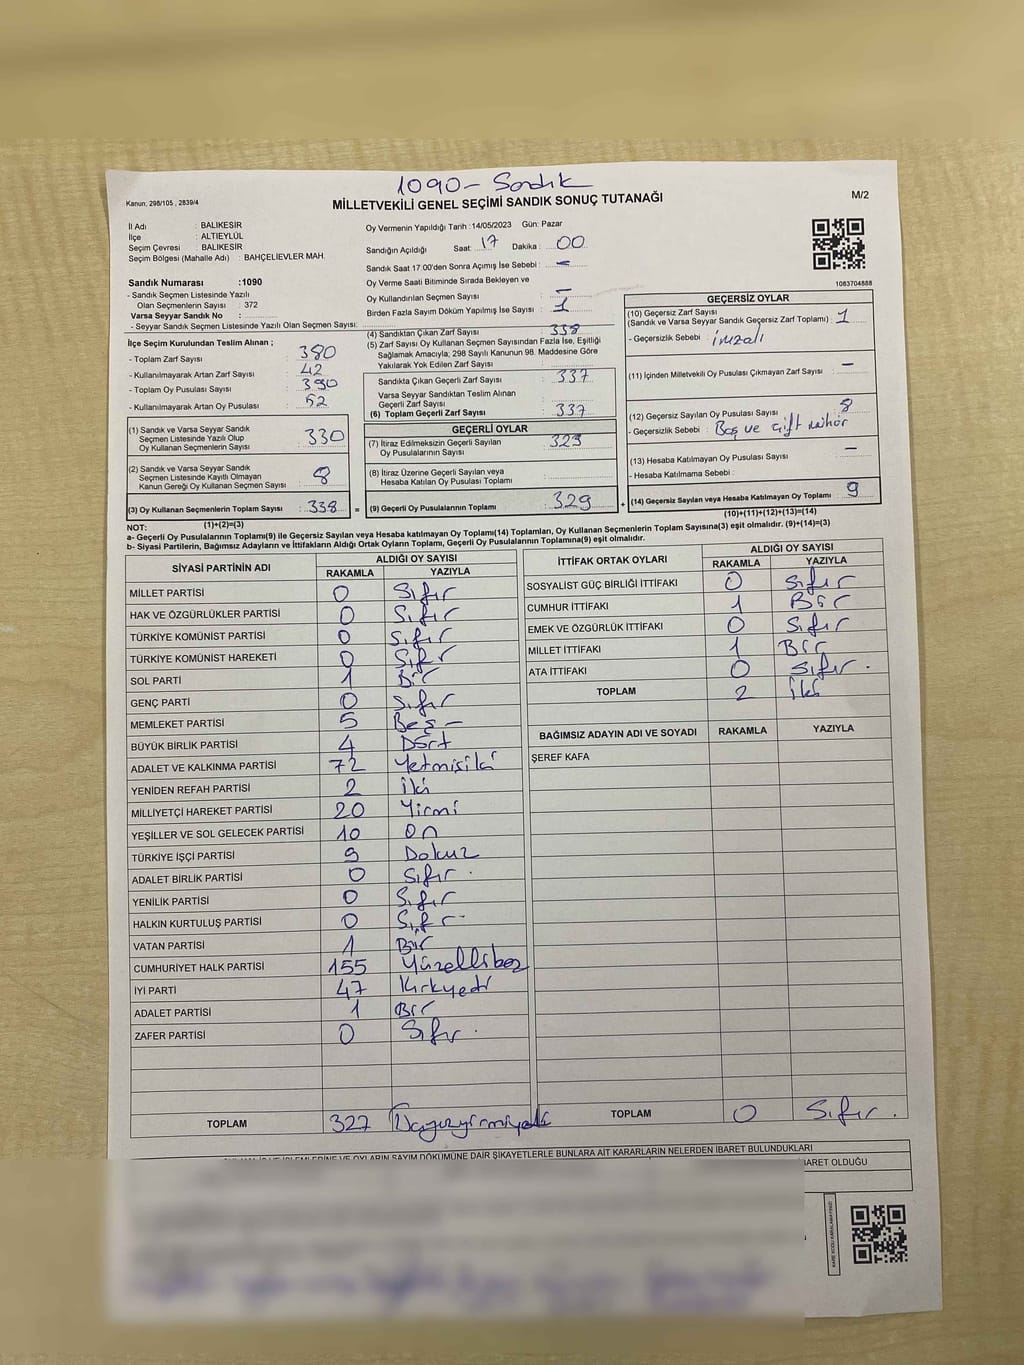 1090 - Sandık
Kanun: 298/105 , 2839/4
MİLLETVEKİLİ GENEL SEÇİMİ SANDIK SONUÇ TUTANAĞI
M/2
İl Adı : BALIKESİR
İlçe : ALTIEYLÜL
Seçim Çevresi : BALIKESİR
Seçim Bölgesi (Mahalle Adı) : BAHÇELİEVLER MAH.
Sandık Numarası :1090
- Sandık Seçmen Listesinde Yazılı
Olan Seçmenlerin Sayısı : 372
Varsa Seyyar Sandık No :
- Seyyar Sandık Seçmen Listesinde Yazılı Olan Seçmen Sayısı:
Oy Vermenin Yapıldığı Tarih :14/05/2023 Gün: Pazar
Sandığın Açıldığı Saat: 17 Dakika : 00
Sandık Saat 17:00'den Sonra Açımış İse Sebebi : –
Oy Verme Saati Bitiminde Sırada Bekleyen ve
Oy Kullandırılan Seçmen Sayısı : –
Birden Fazla Sayım Döküm Yapılmış İse Sayısı : 1
1083704888
İlçe Seçim Kurulundan Teslim Alınan ;
- Toplam Zarf Sayısı : 380
- Kullanılmayarak Artan Zarf Sayısı : 42
- Toplam Oy Pusulası Sayısı : 390
- Kullanılmayarak Artan Oy Pusulası : 52
(1) Sandık ve Varsa Seyyar Sandık
Seçmen Listesinde Yazılı Olup
Oy Kullanan Seçmenlerin Sayısı : 330
(2) Sandık ve Varsa Seyyar Sandık
Seçmen Listesinde Kayıtlı Olmayan
Kanun Gereği Oy Kullanan Seçmen Sayısı : 8
(3) Oy Kullanan Seçmenlerin Toplam Sayısı : 338 =
(1)+(2)=(3)
(4) Sandıktan Çıkan Zarf Sayısı : 338
(5) Zarf Sayısı Oy Kullanan Seçmen Sayısından Fazla İse, Eşitliği
Sağlamak Amacıyla; 298 Sayılı Kanunun 98. Maddesine Göre
Yakılarak Yok Edilen Zarf Sayısı :
Sandıkta Çıkan Geçerli Zarf Sayısı : 337
Varsa Seyyar Sandıktan Teslim Alınan
Geçerli Zarf Sayısı :
(6) Toplam Geçerli Zarf Sayısı : 337
GEÇERLİ OYLAR
(7) İtiraz Edilmeksizin Geçerli Sayılan
Oy Pusulalarının Sayısı : 329
(8) İtiraz Üzerine Geçerli Sayılan veya
Hesaba Katılan Oy Pusulası Toplamı :
(9) Geçerli Oy Pusulalarının Toplamı : 329 +
GEÇERSİZ OYLAR
(10) Geçersiz Zarf Sayısı
(Sandık ve Varsa Seyyar Sandık Geçersiz Zarf Toplamı) : 1
- Geçersizlik Sebebi : imzalı
(11) İçinden Milletvekili Oy Pusulası Çıkmayan Zarf Sayısı : –
(12) Geçersiz Sayılan Oy Pusulası Sayısı : 8
- Geçersizlik Sebebi : Boş ve çift mühür
(13) Hesaba Katılmayan Oy Pusulası Sayısı : –
- Hesaba Katılmama Sebebi :
(14) Geçersiz Sayılan veya Hesaba Katılmayan Oy Toplamı : 9
(10)+(11)+(12)+(13)=(14)
NOT:
a- Geçerli Oy Pusulalarının Toplamı(9) ile Geçersiz Sayılan veya Hesaba katılmayan Oy Toplamı(14) Toplamları, Oy Kullanan Seçmenlerin Toplam Sayısına(3) eşit olmalıdır. (9)+(14)=(3)
b- Siyasi Partilerin, Bağımsız Adayların ve İttifakların Aldığı Ortak Oyların Toplamı, Geçerli Oy Pusulalarının Toplamına(9) eşit olmalıdır.
SİYASİ PARTİNİN ADI ALDIĞI OY SAYISI
RAKAMLA YAZIYLA
MİLLET PARTİSİ 0 Sıfır
HAK VE ÖZGÜRLÜKLER PARTİSİ 0 Sıfır
TÜRKİYE KOMÜNİST PARTİSİ 0 Sıfır
TÜRKİYE KOMÜNİST HAREKETİ 0 Sıfır
SOL PARTİ 1 Bir
GENÇ PARTİ 0 Sıfır
MEMLEKET PARTİSİ 5 Beş –
BÜYÜK BİRLİK PARTİSİ 4 Dört
ADALET VE KALKINMA PARTİSİ 72 Yetmişiki
YENİDEN REFAH PARTİSİ 2 İki
MİLLİYETÇİ HAREKET PARTİSİ 20 Yirmi
YEŞİLLER VE SOL GELECEK PARTİSİ 10 On
TÜRKİYE İŞÇİ PARTİSİ 9 Dokuz
ADALET BİRLİK PARTİSİ 0 Sıfır .
YENİLİK PARTİSİ 0 Sıfır
HALKIN KURTULUŞ PARTİSİ 0 Sıfır
VATAN PARTİSİ 1 Bir
CUMHURİYET HALK PARTİSİ 155 Yüzellibeş
İYİ PARTİ 47 Kırkyedi
ADALET PARTİSİ 1 Bir
ZAFER PARTİSİ 0 Sıfır .
TOPLAM 327 Üçyüzyirmiyedi
İTTİFAK ORTAK OYLARI ALDIĞI OY SAYISI
RAKAMLA YAZIYLA
SOSYALİST GÜÇ BİRLİĞİ İTTİFAKI 0 Sıfır
CUMHUR İTTİFAKI 1 Bir
EMEK VE ÖZGÜRLÜK İTTİFAKI 0 Sıfır
MİLLET İTTİFAKI 1 Bir
ATA İTTİFAKI 0 Sıfır .
TOPLAM 2 İki
BAĞIMSIZ ADAYIN ADI VE SOYADI RAKAMLA YAZIYLA
ŞEREF KAFA
TOPLAM 0 Sıfır .
OYLARIN SAYIM DÖKÜMÜNE DAİR ŞİKAYETLERLE BUNLARA AİT KARARLARIN NELERDEN İBARET BULUNDUKLARI
İBARET OLDUĞU